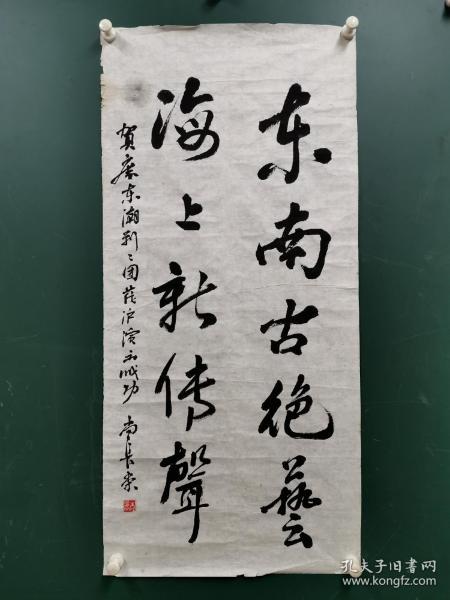 东南古绝艺
海上新传聲
贺广东潮剧之团莅沪演出成功 尚长荣
孔夫子旧书网
www.kongfz.com